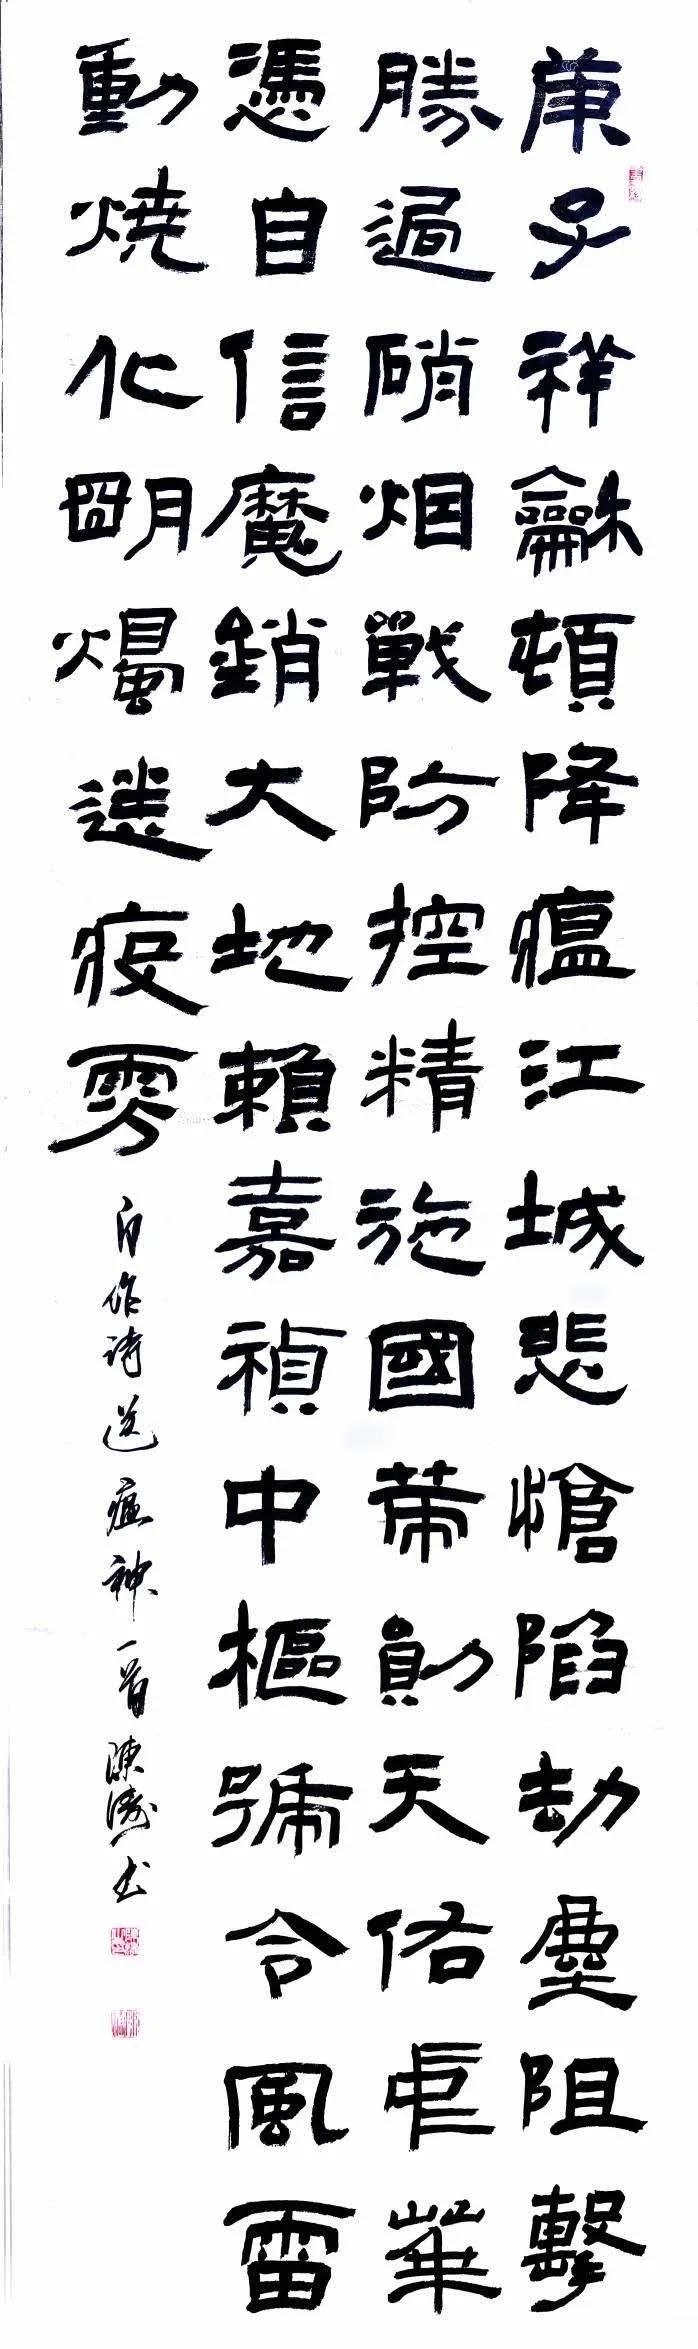 庚子祥龢頓降瘟江城悲愴陷劫塵阻擊
勝過硝烟戰防控精施國勛天佑華
憑自信魔銷大地賴嘉禎中樞號令風雷
動燒化朙燭送疫雰
自作詩送瘟神一首陳濤书